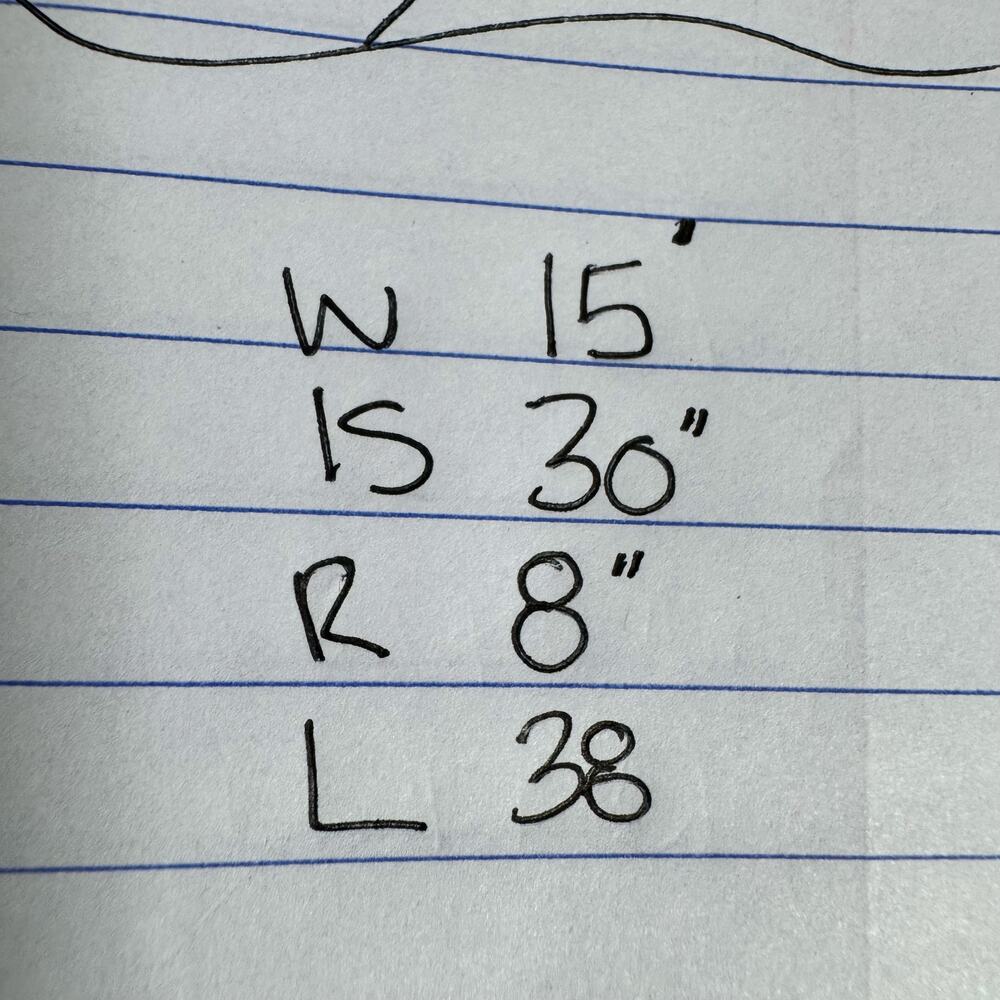 W 15"
IS 30"
R 8"
L 38